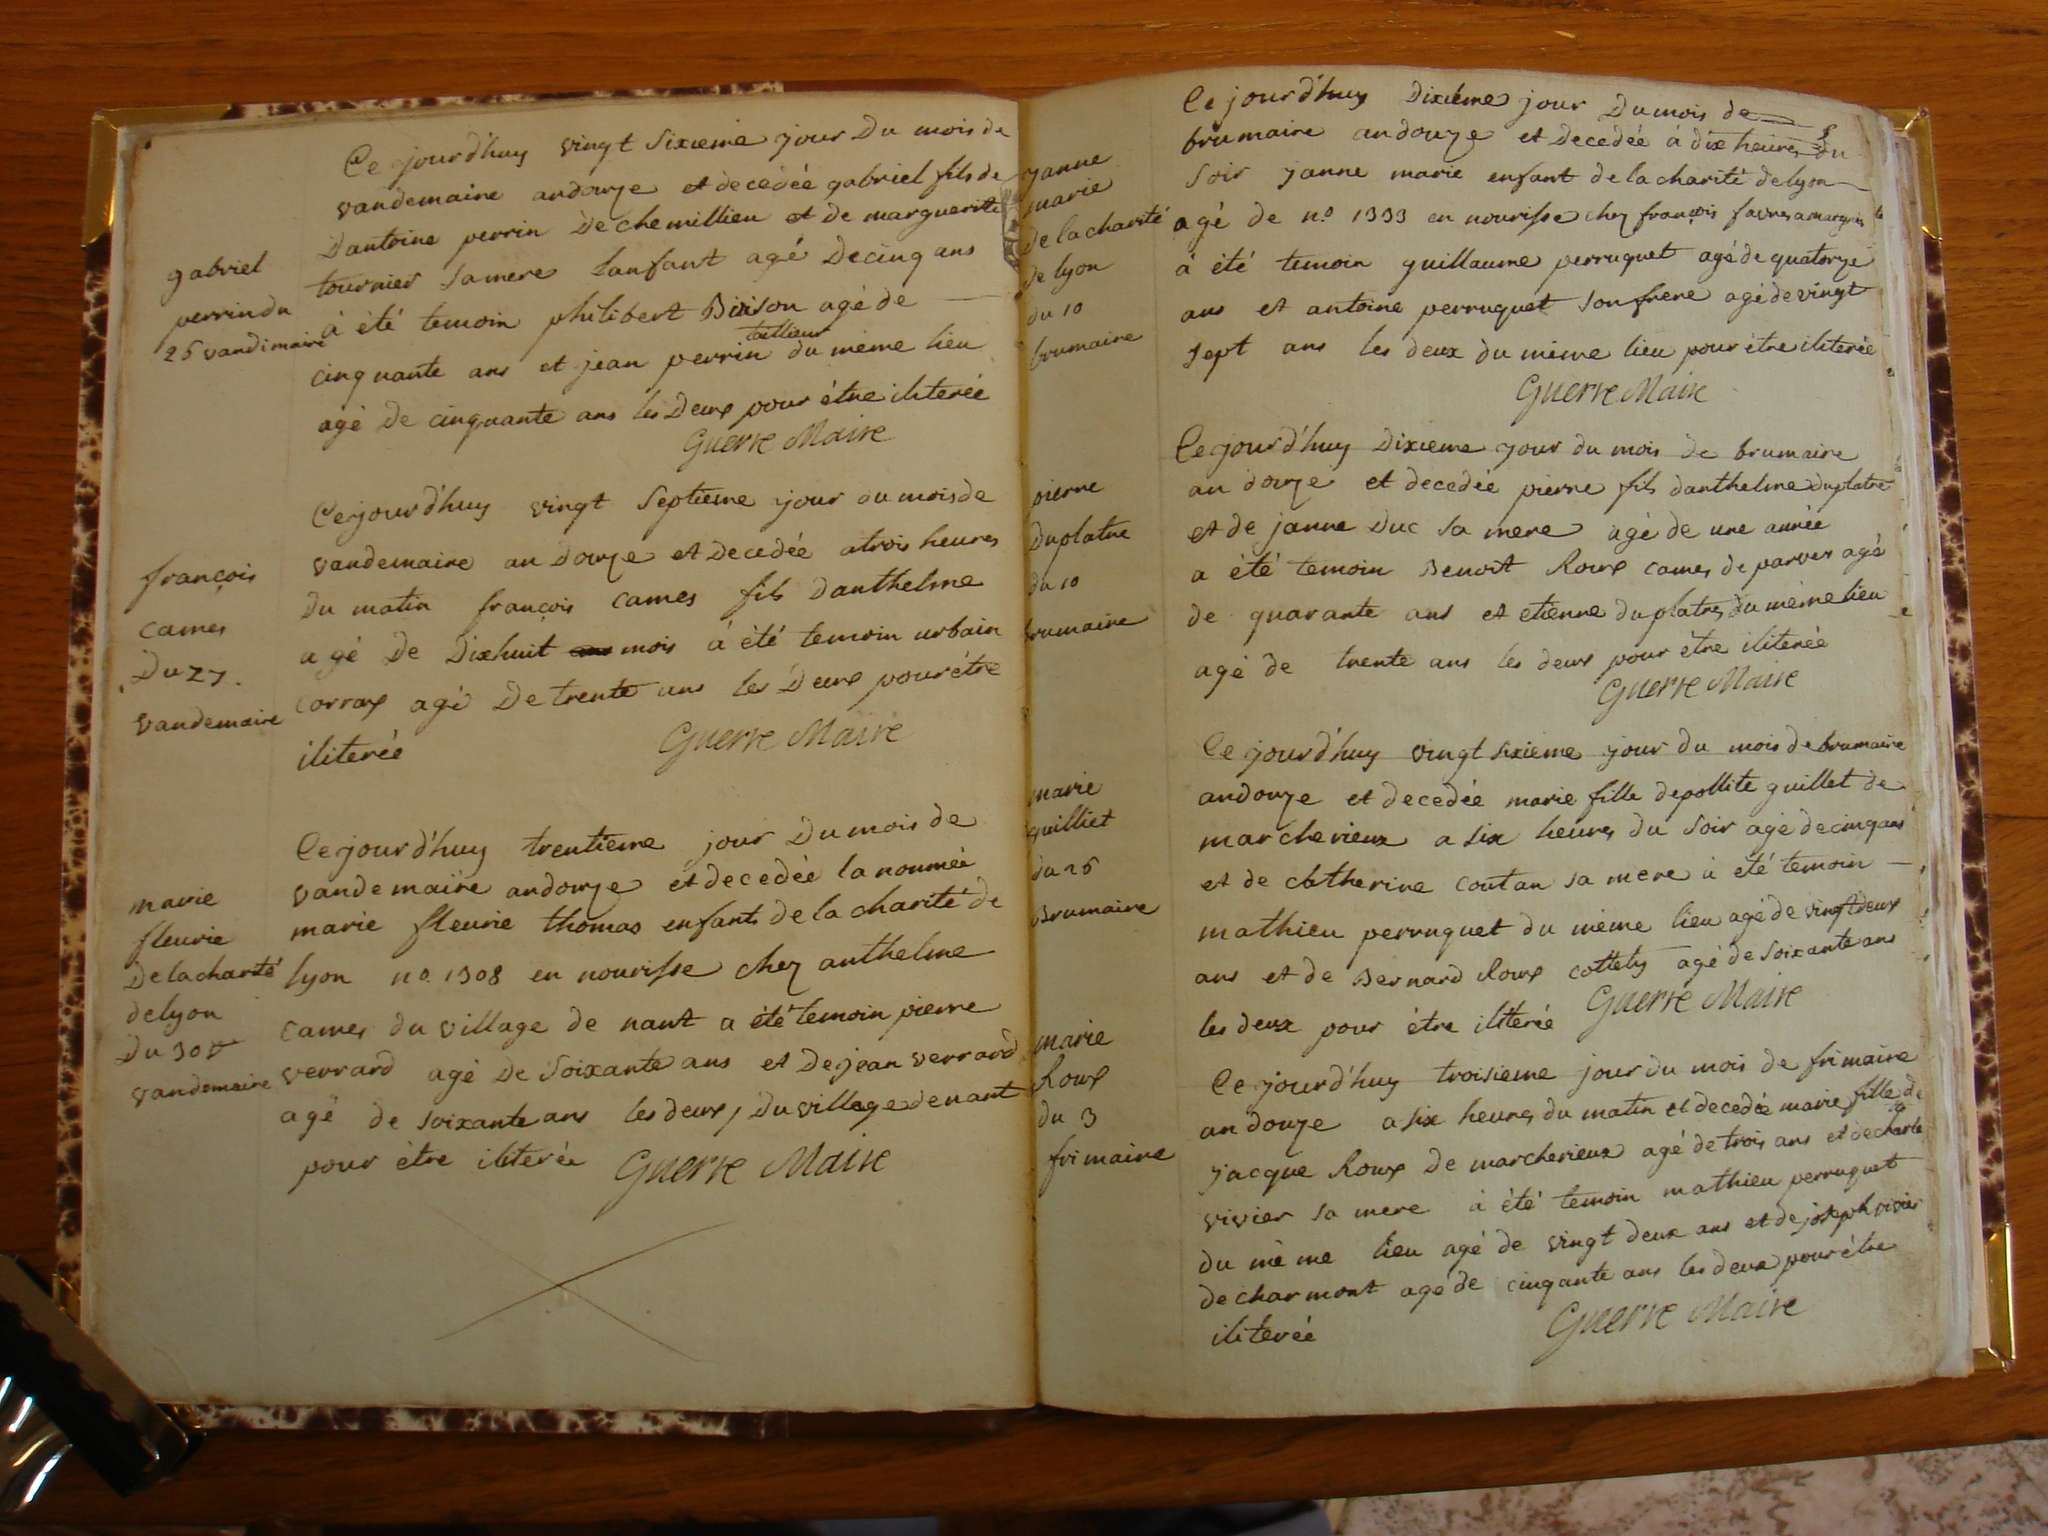 gabriel
perrin du
26 vandimaire
Ce jourd'huy vingt sixieme jour du mois de
vandemaire an douze et decedée gabriel fils de
d'antoine perrin de chemillieu et de marguerite
tournier sa mere lanfant agé de cinq ans
à été temoin philibert Buison agé de
cinquante ans et jean perrin tallieur du même lieu
agé de cinquante ans les deux pour être iliterée
Guerre Maire
françois
cames
du 27.
vandemaire
Ce jourd'huy vingt septieme jour du mois de
vandemaire an douze et decedée a trois heures
du matin françois cames fils d'anthelme
agé de dixhuit ans mois à été temoin urbain
corrax agé de trente ans les deux pour être
iliterée Guerre Maire
marie
fleurie
de la charité
de lyon
du 30e
vandemaire
Ce jourd'huy trentieme jour du mois de
vandemaire an douze et decedée la nomée
marie fleurie thomas enfants de la charité de
lyon no. 1308 en nourisse chez anthelme
cames du village de nant a été temoin pierre
verrard agé de soixante ans et de jean verrard
agé de soixante ans les deux, du village de nant
pour être iliterée Guerre Maire
janne
marie
de la charité
de lyon
du 10
brumaire
Ce jourd'huy dixieme jour du mois de
brumaire an douze et decedée à dix heures du
soir janne marie enfant de la charité de lyon
agé de no. 1333 en nourisse chez françois favre
à été temoin guillaume perruquet agé de quatorze
ans et antoine perruquet son frere agé de vingt
sept ans les deux du même lieu pour être iliterée
Guerre Maire
pierre
duplatre
du 10
brumaire
Ce jourd'huy dixieme jour du mois de brumaire
an douze et decedée pierre fils d'anthelme duplatre
et de janne duc sa mere agé de une année
a été temoin Benoit Roux cames de parver agé
de quarante ans et etienne duplatre du même lieu
agé de trente ans les deux pour être iliterée
Guerre Maire
marie
guilliet
du 26
Brumaire
Ce jourd'huy vingt sixieme jour du mois de brumaire
an douze et decedée marie fille de pollite guillet de
marcherieux a six heures du soir agé de cinq ans
et de catherine coutan sa mere à été temoin
mathieu perruquet du même lieu agé de vingt deux
ans et de Bernard Roux cottety agé de soixante ans
les deux pour être iliterée Guerre Maire
marie
Roux
du 3
frimaire
Ce jourd'huy troisieme jour du mois de frimaire
an douze a six heures du matin et decedée marie fille de
jacque Roux de marcherieux agé de trois ans et de charle
vivier sa mere à été temoin mathieu perruquet
du même lieu agé de vingt deux ans et de joseph vivier
de charmont agé de cinqante ans les deux pour être
iliterée Guerre Maire